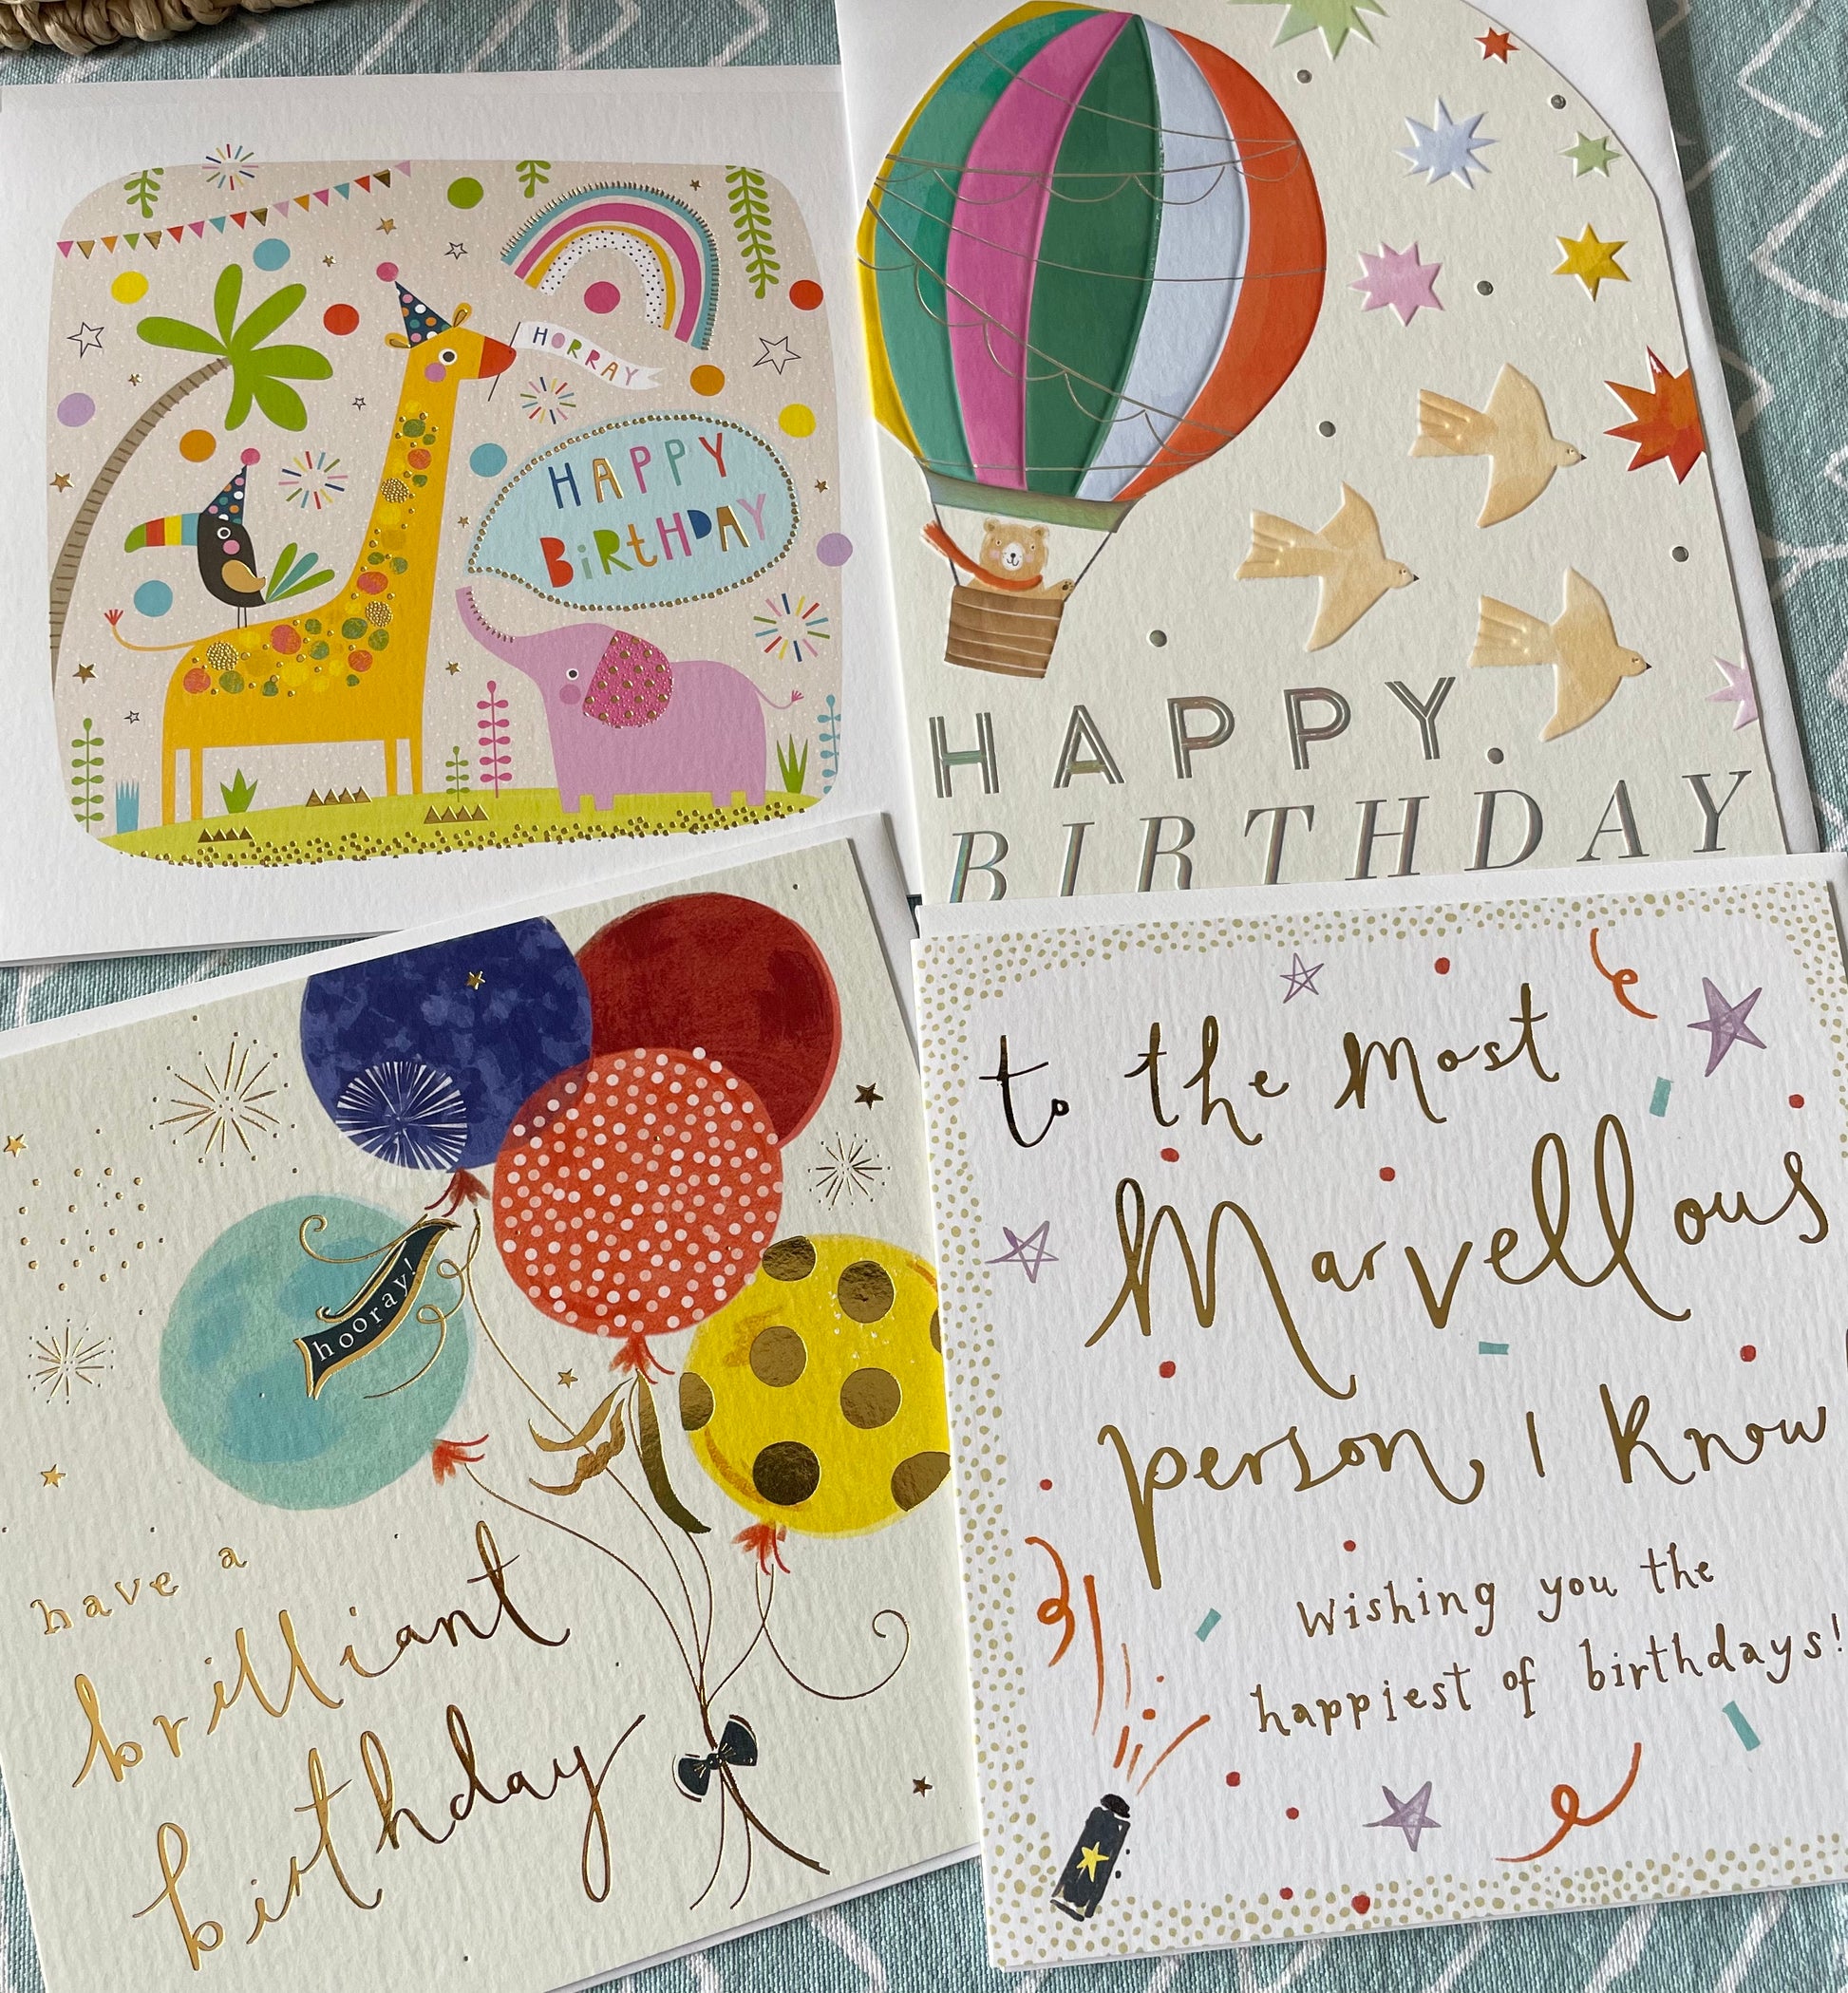 HORRAY
HAPPY
BiRtHDAY
HAPPY
BIRTHDAY
hooray!
have a
brilliant
birthday
to the most
Marvellous
person I know
Wishing you the
happiest of birthdays!